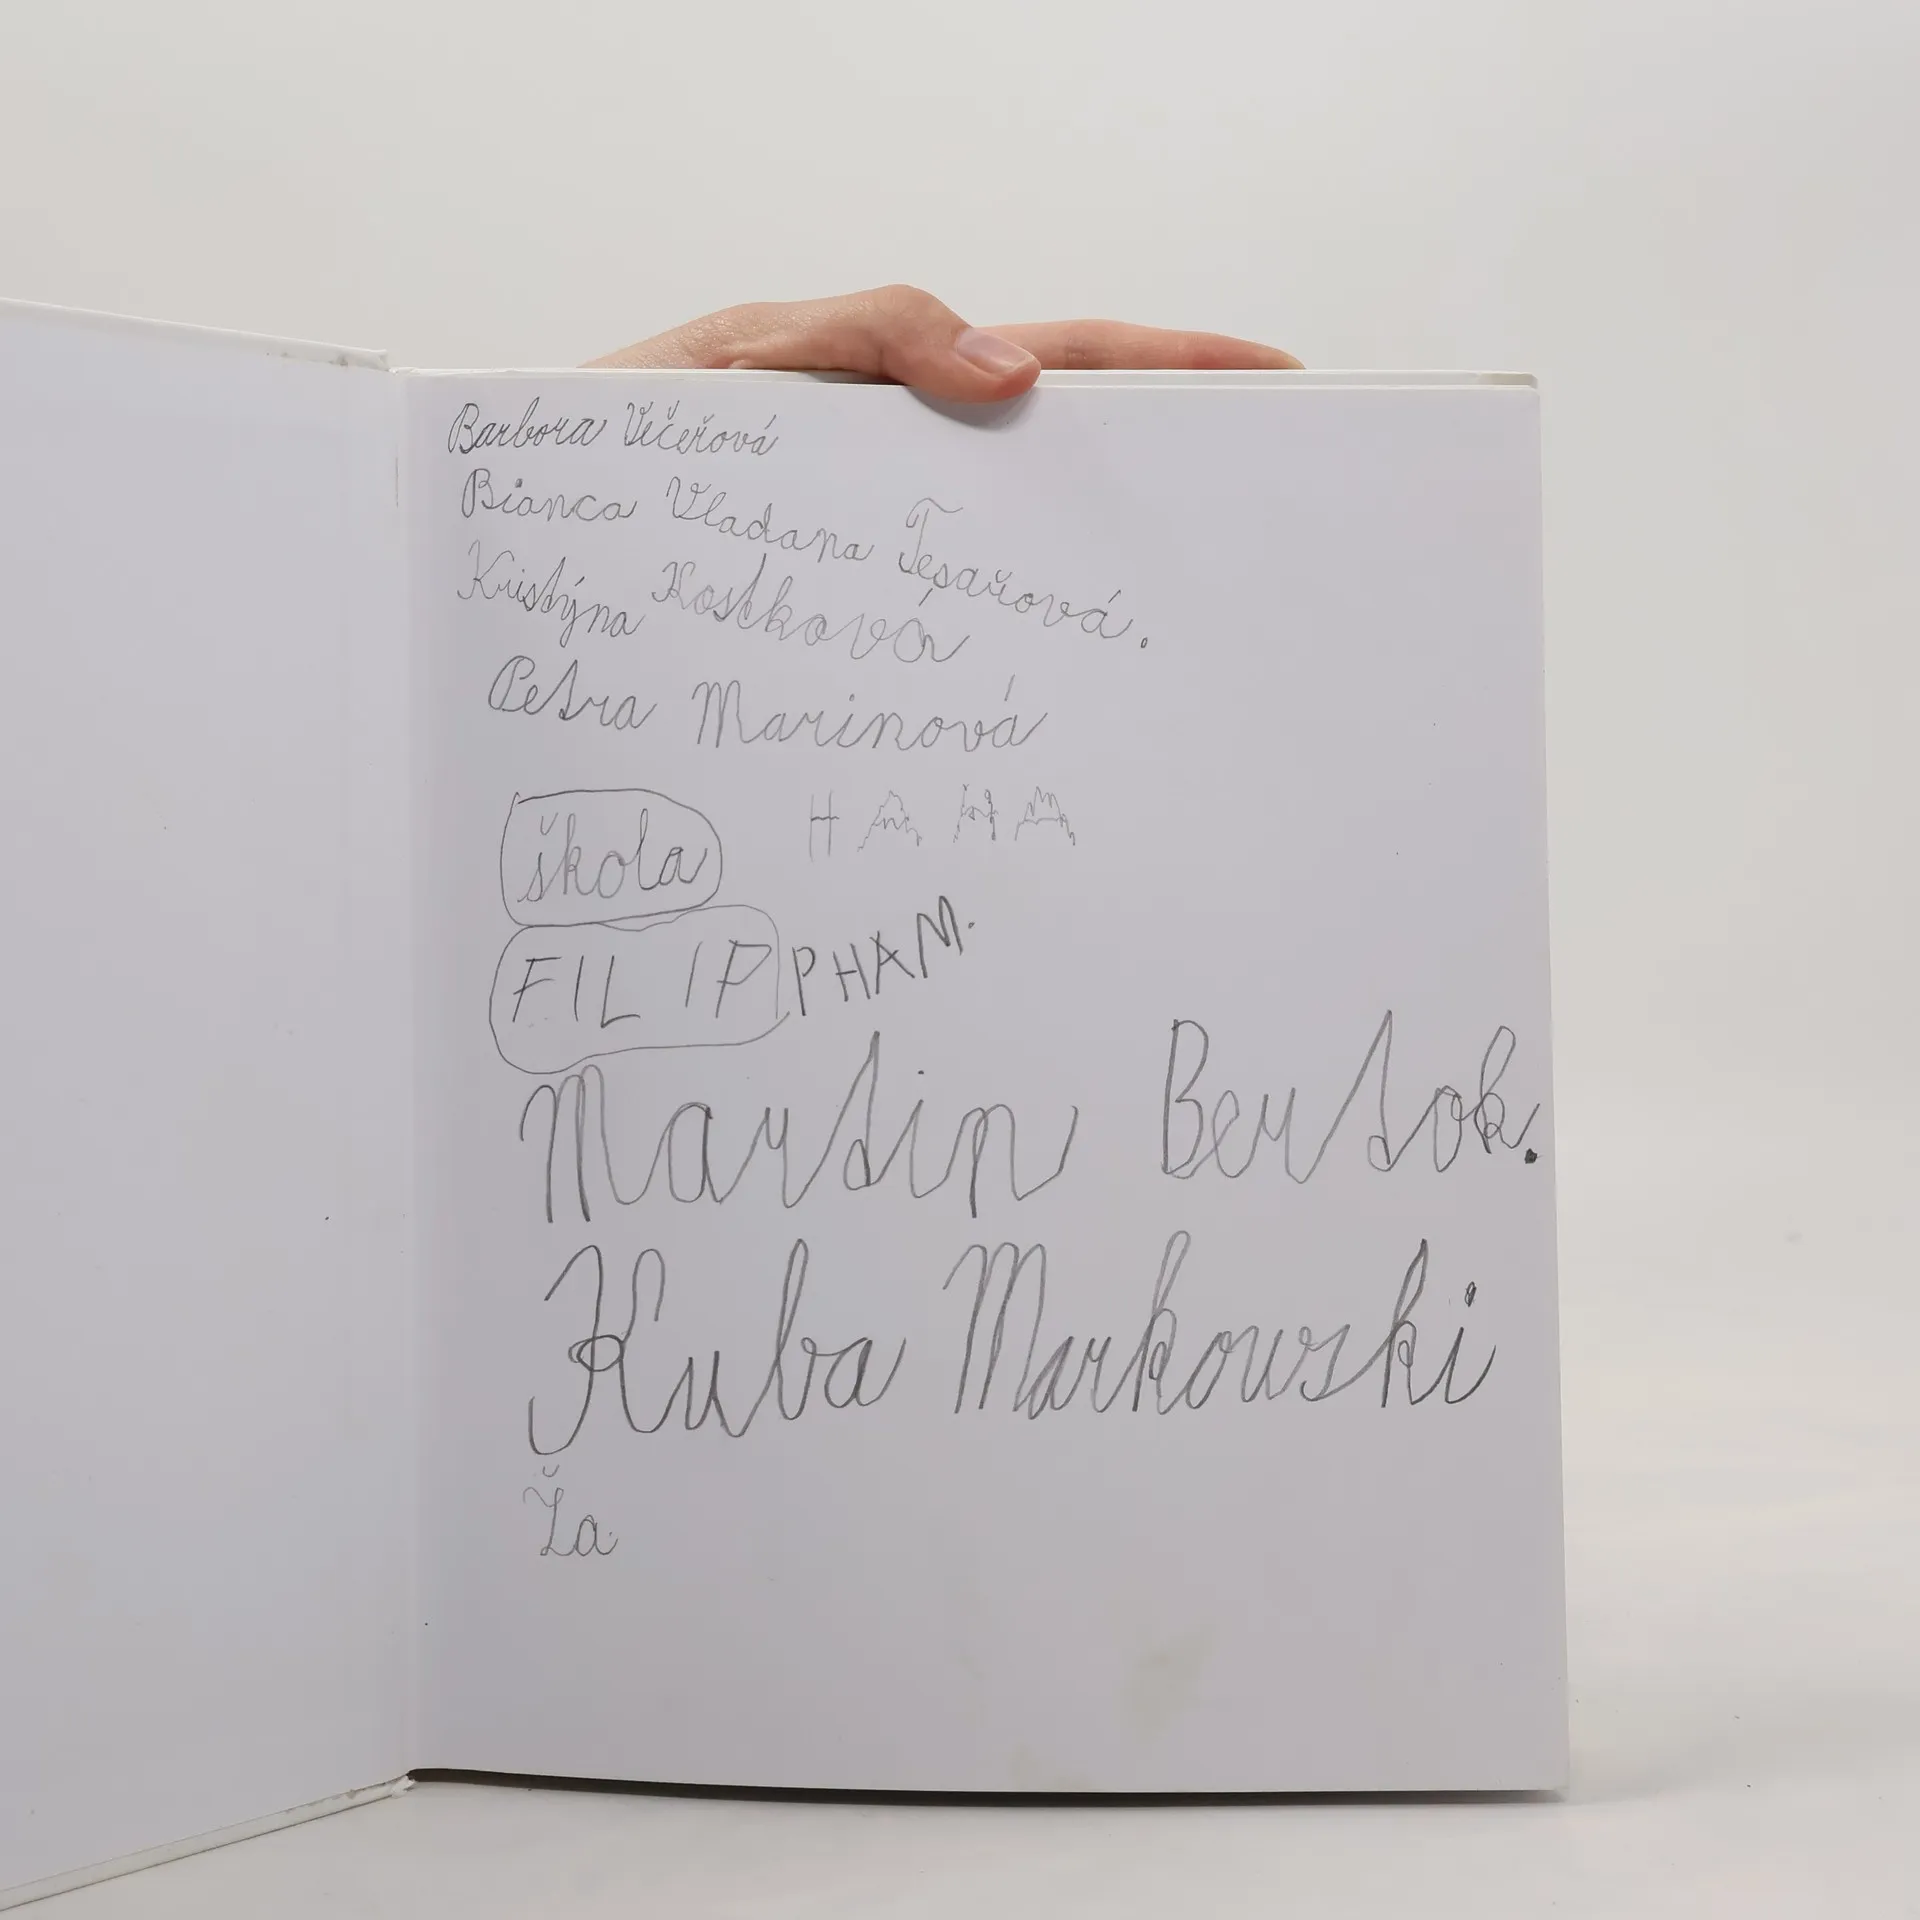 Barbora Večeřová
Bianca Vladana Tesařová.
Kristýna Kostková
Petra Marinová
škola
HAHA
FILIP PHAM.
Martin Bertok.
Kuba Markowski
Ža